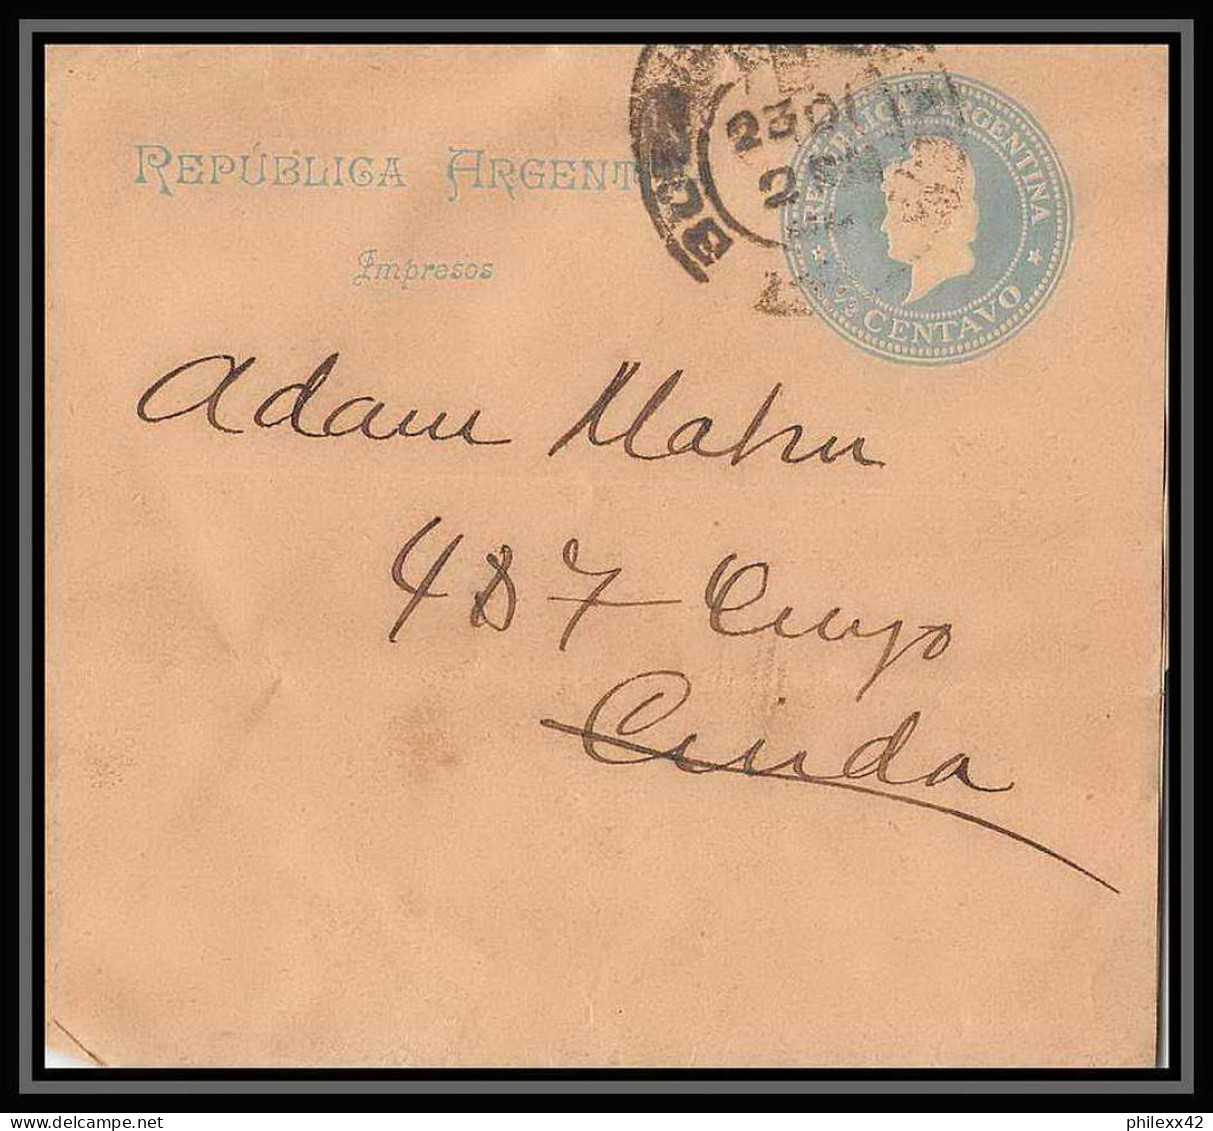 REPÚBLICA ARGENT
Impresos
BUEN
23 OC
2 PM
REPUBLICA ARGENTINA
1/2 CENTAVO
Adam Mahn
487 Cuyo
Ciuda
philexx42